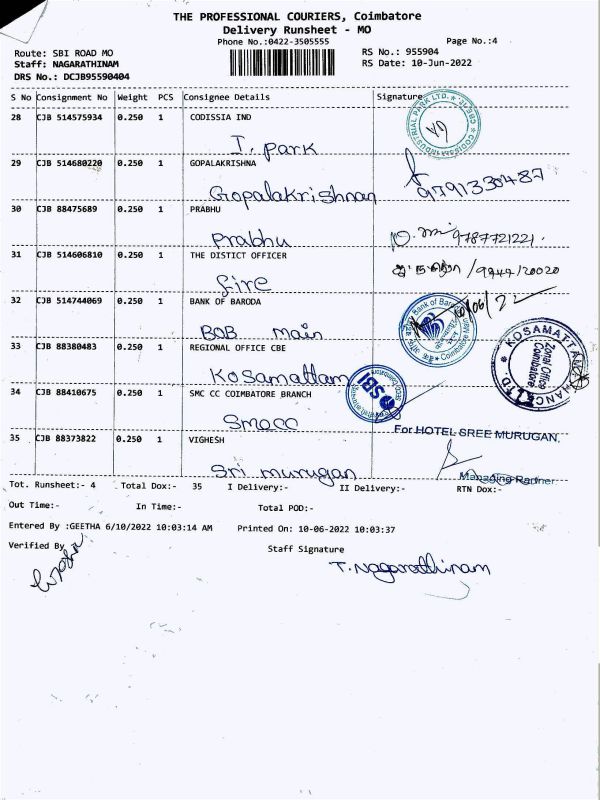 THE PROFESSIONAL COURIERS, Coimbatore
Delivery Runsheet - MO
Phone No.:0422-3505555
Page No.:4
Route: SBI ROAD MO
RS No.: 955904
Staff: NAGARATHINAM
RS Date: 10-Jun-2022
DRS No.: DCJB95590404
S No Consignment No Weight PCS Consignee Details Signature
28 CJB 514575934 0.250 1 CODISSIA IND
I. park
29 CJB 514680220 0.250 1 GOPALAKRISHNA
Gopalakrishnan 9791330487
30 CJB 88475689 0.250 1 PRABHU
Prabhu 9787721221.
31 CJB 514606810 0.250 1 THE DISTICT OFFICER
fire
32 CJB 514744069 0.250 1 BANK OF BARODA
BOB main
33 CJB 88380483 0.250 1 REGIONAL OFFICE CBE
Kosamattam
KOSAMATTAM
Zonal Office
Coimbatore
34 CJB 88410675 0.250 1 SMC CC COIMBATORE BRANCH
SBI
Smccc
For HOTEL SREE MURUGAN,
35 CJB 88373822 0.250 1 VIGHESH
Sri murugan
Managing Partner
Tot. Runsheet:- 4 Total Dox:- 35 I Delivery:- II Delivery:- RTN Dox:-
Out Time:- In Time:- Total POD:-
Entered By :GEETHA 6/10/2022 10:03:14 AM Printed On: 10-06-2022 10:03:37
Verified By
Staff Signature
T. Nagarathinam